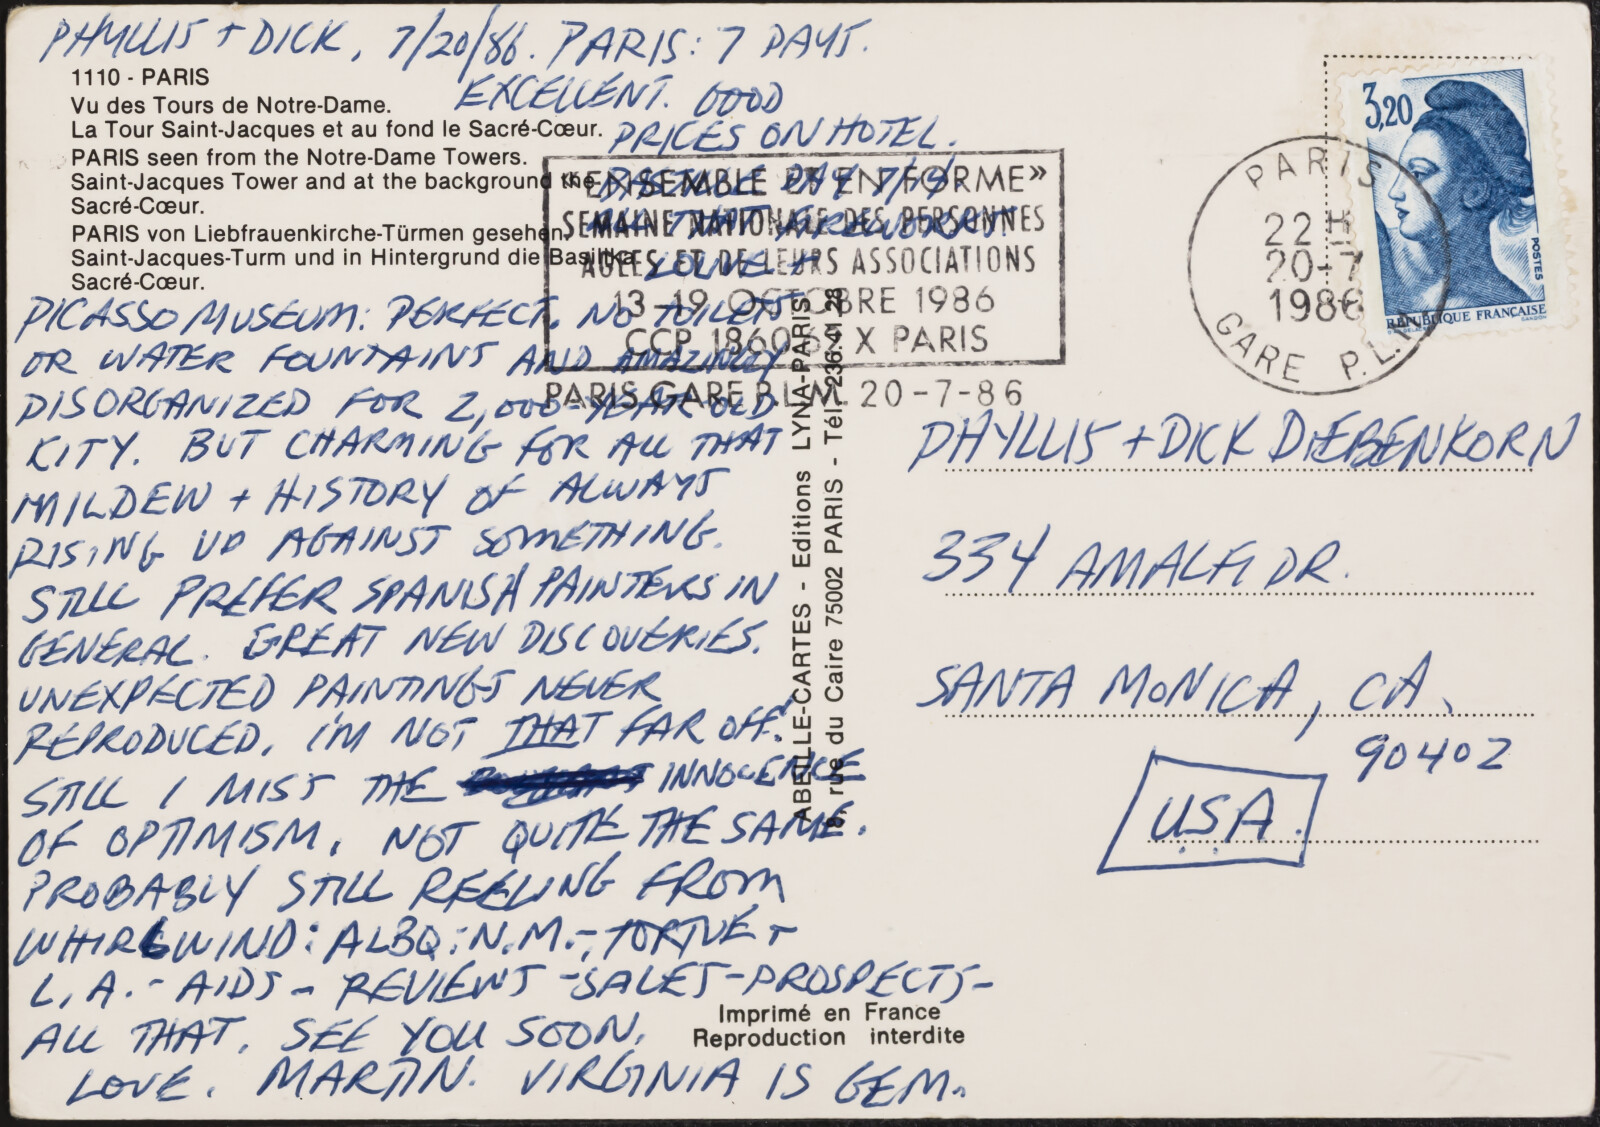 PHYLLIS + DICK, 7/20/86. PARIS: 7 DAYS.
EXCELLENT. GOOD
PRICES ON HOTEL.
BASTILLE DAY 7/14.
ALL THAT FIREWORKS.
LOUVRE +
PICASSO MUSEUM: PERFECT. NO TOILETS
OR WATER FOUNTAINS AND AMAZINGLY
DISORGANIZED FOR 2,000-YEAR-OLD
KITY. BUT CHARMING FOR ALL THAT
MILDEW + HISTORY OF ALWAYS
RISING UP AGAINST SOMETHING.
STILL PREFER SPANISH PAINTERS IN
GENERAL. GREAT NEW DISCOVERIES.
UNEXPECTED PAINTINGS NEVER
REPRODUCED. I'M NOT THAT FAR OFF.
STILL I MISS THE INNOCENCE
OF OPTIMISM, NOT QUITE THE SAME.
PROBABLY STILL REELING FROM
WHIRLWIND: ALBQ. N.M.-, TORTUE +
L.A. - AIDS - REVIEWS - SALES - PROSPECTS -
ALL THAT. SEE YOU SOON.
LOVE. MARTIN. VIRGINIA IS GEM.
1110 - PARIS
Vu des Tours de Notre-Dame.
La Tour Saint-Jacques et au fond le Sacré-Cœur.
PARIS seen from the Notre-Dame Towers.
Saint-Jacques Tower and at the background the
Sacré-Cœur.
PARIS von Liebfrauenkirche-Türmen gesehen.
Saint-Jacques-Turm und in Hintergrund die Basilika
Sacré-Cœur.
«ENSEMBLE ET EN FORME»
SEMAINE NATIONALE DES PERSONNES
AGEES ET DE LEURS ASSOCIATIONS
13-19 OCTOBRE 1986
CCP 1860 X PARIS
PARIS GARE P.L.M. 20-7-86
ABEILLE-CARTES - Editions LYNA-PARIS
8, rue du Caire 75002 PARIS - Tél. 236.41.28
Imprimé en France
Reproduction interdite
3,20
POSTES
RÉPUBLIQUE FRANÇAISE
GANDON
PARIS
22 H
20-7
1986
GARE P.L.M
PHYLLIS + DICK DIEBENKORN
334 AMALFI DR.
SANTA MONICA, CA.
90402
USA.